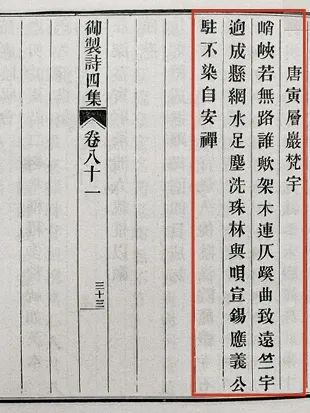 唐寅層巖梵宇
峭峽若無路誰歟架木連仄蹊曲致遠竺宇
逈成懸網水足塵洗珠林與唄宣錫應義公
駐不染自安禪
御製詩四集
卷八十一
三十三